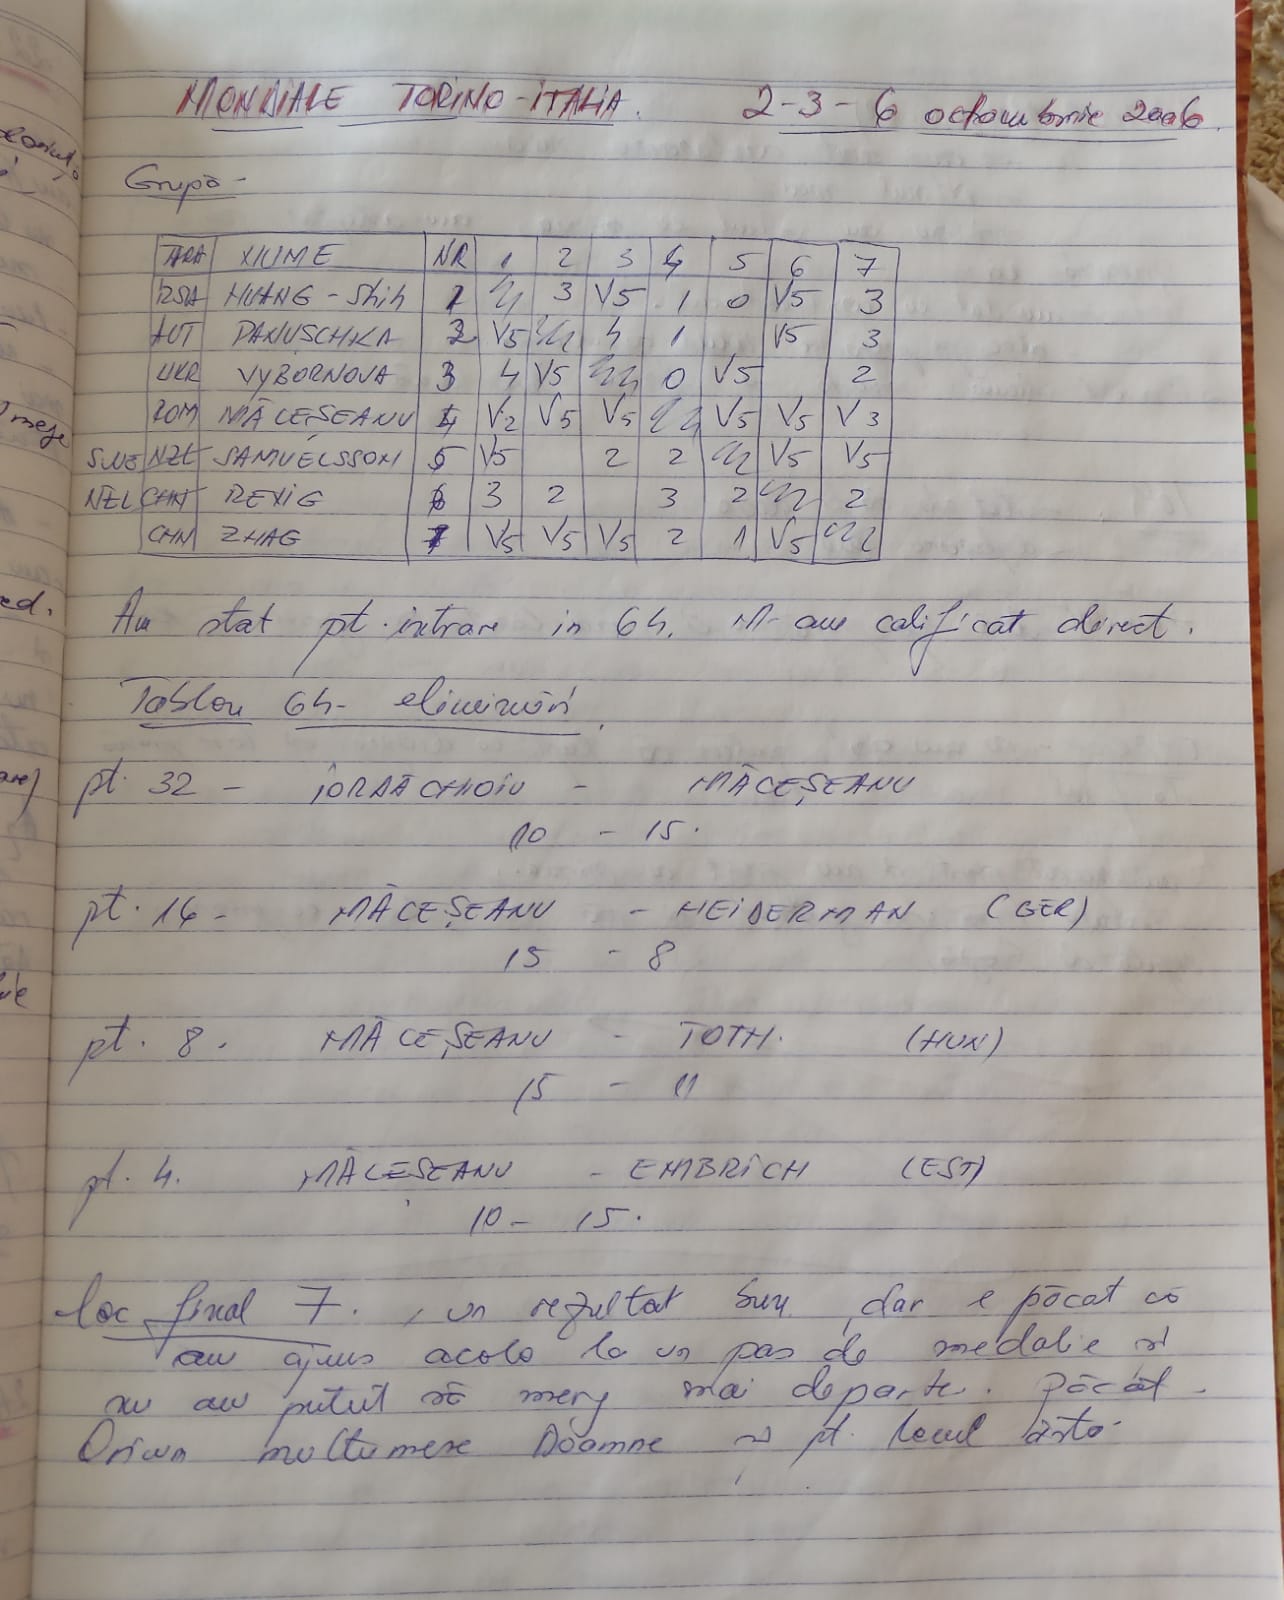 MONDIALE TORINO-ITALIA. 2-3-6 octombrie 2006.
Grupă-
ȚARA NUME NR 1 2 3 4 5 6 7
RSA HUANG - Shih 1 3 V5 1 0 V5 3
AUT PANUSCHKA 2 V5 4 1 V5 3
UKR VYBORNOVA 3 4 V5 0 V5 2
ROM MĂCEȘEANU 4 V2 V5 V5 V5 V5 V3
SWE SAMUELSSON 5 V5 2 2 V5 V5
NZL REXIG 6 3 2 3 2 2
CHN ZHAG 7 V5 V5 V5 2 1 V5
Am stat pt. intrare in 64. M-am calificat direct.
Tablou 64- eliminări.
pt. 32 - IORDĂCHIOIU - MĂCEȘEANU
10 - 15.
pt. 16 - MĂCEȘEANU - HEIDERMAN (GER)
15 - 8
pt. 8. MĂCEȘEANU - TOTH. (HUN)
15 - 11
pt. 4. MĂCEȘEANU - EMBRICH (EST)
10 - 15.
loc final 7. , un rezultat bun, dar e păcat că
am ajuns acolo la un pas de medalie și
nu am putut să merg mai departe. Păcat.
Oricum mulțumesc Doamne și pt. locul ăsta.